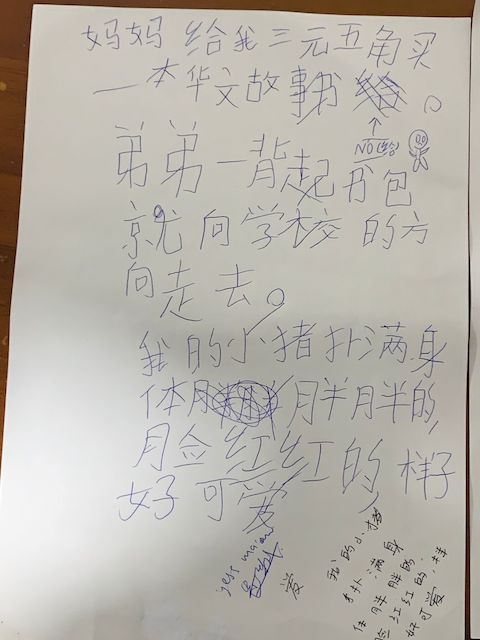 妈妈给我三元五角买
一本华文故事书。
NO给
弟弟一背起书包
就向学校的方
向走去。
我的小猪扑满身
体胖胖胖的,
脸红红的,样子
好可爱
jess
爱
我的小猪
扑满身
体胖胖的
脸红红的,样
好可爱